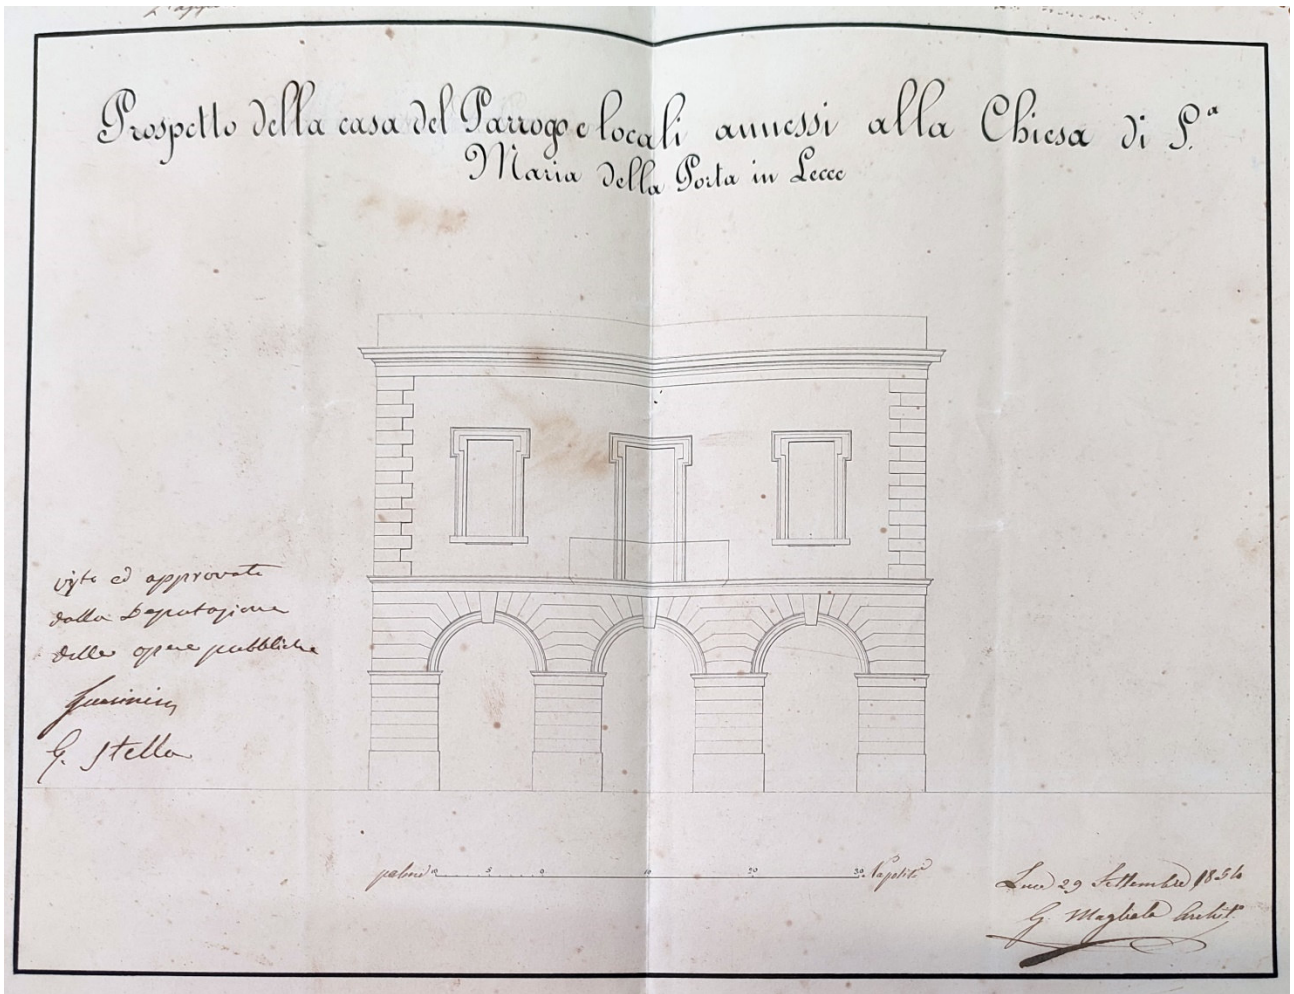 Prospetto della casa del Parroco e locali annessi alla Chiesa di S.a
Maria della Porta in Lecce
vista ed approvata
dalla Deputazione
delle opere pubbliche
G. Stella
palmi 10 5 0 10 20 30 Napolit.i
Lecce 29 Settembre 1856
G. Magliola Archit.